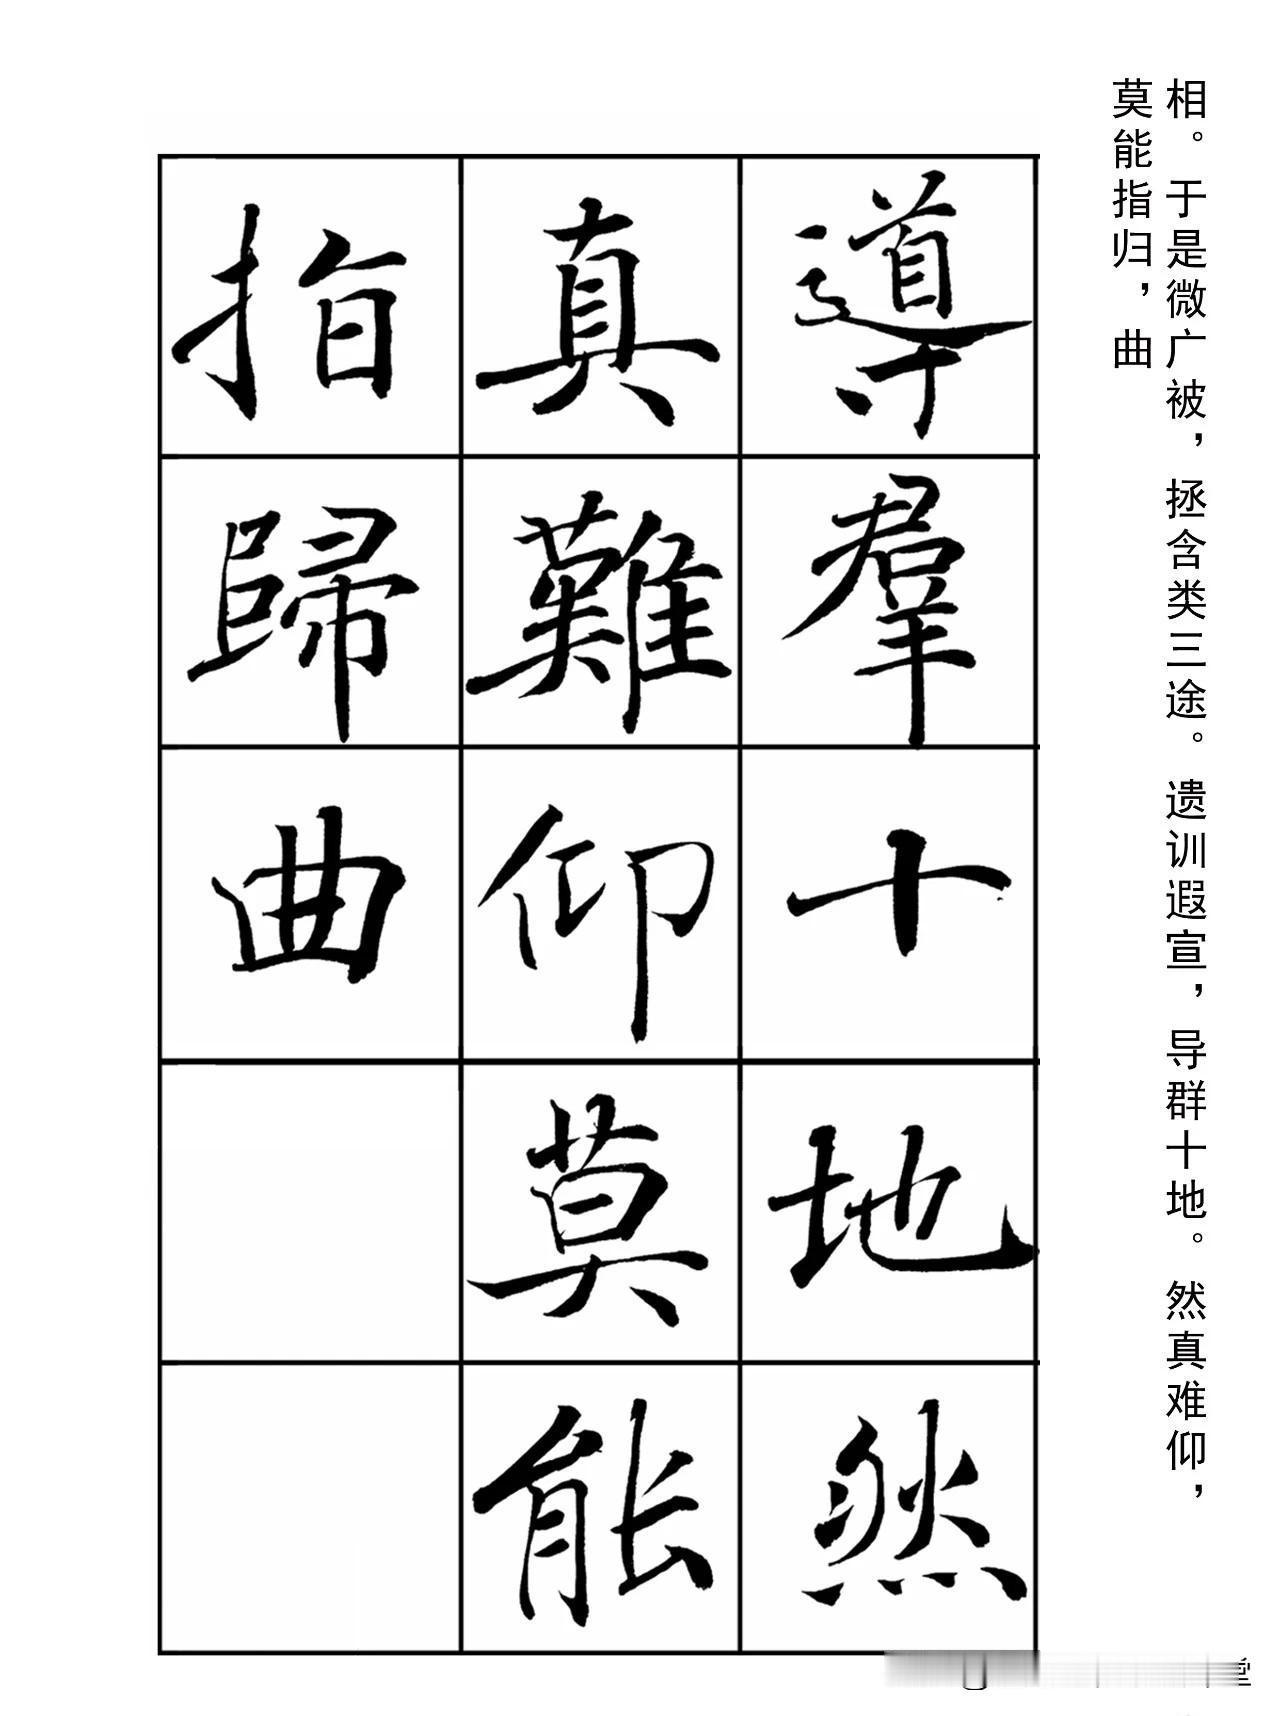 相。于是微广被，拯含类三途。遗训遐宣，导群十地。然真难仰，
莫能指归，曲
導羣十地然
真難仰莫能
指歸曲